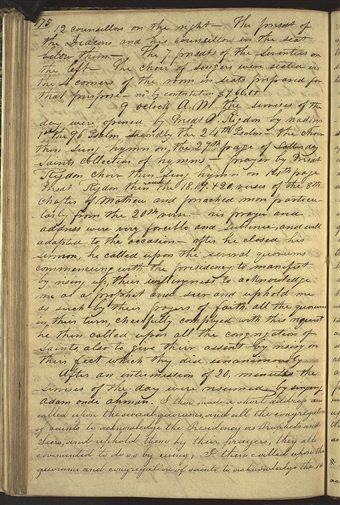 178
12 counsellors on the right— The president of
the Deacons and his counsellors in the seat
below them— The 7 presidents of the Seventies on
the left— The choir of singers were seated in
the 4 corners of the room in seats prepared for
that purpose— rec'd by contribution $960.00
9 oclock A.M. The services of the
day were opened by Presd S. Rigdon by reading
1st the 96 Psalm secondly the 24th Psalm— the choir
then sung hymn on the 29th page of Latter day
Saints collection of hymns— prayer by Presdt
Rigdon choir then sung hymn on 14th page
Presdt Rigdon then the 18. 19. & 20. verses of the 8th
chapter of Mathew and preached more particu-
larly from the 20th verse.— his prayer and
address were very forcible and sublime, and well
adapted to the occasion— after he closed his
sermon, he called upon the several quorums
commencing with the presidency, to manifest
by rising up, their willingness to acknowledge
me as a prophet and seer and uphold me
as such by their prayers of faith all the quorums
in their turn, cheerfully complyed with this request
he then called upon all the congregation of
Saints, also to give their assent by rising on
their feet which they did unanimously
After an intermission of 20, minutes the
services of the day were resumed, by singing
Adam ondi ahman. I then made a short address and
called upon the several quorums, and all the congregation
of saints to acknowledge the Presidency as Prophets and
Seers, and uphold them by their prayers, they all
covenanted to do so by rising; I then called upon the
quorums and congregation of saints to acknowledge the 12